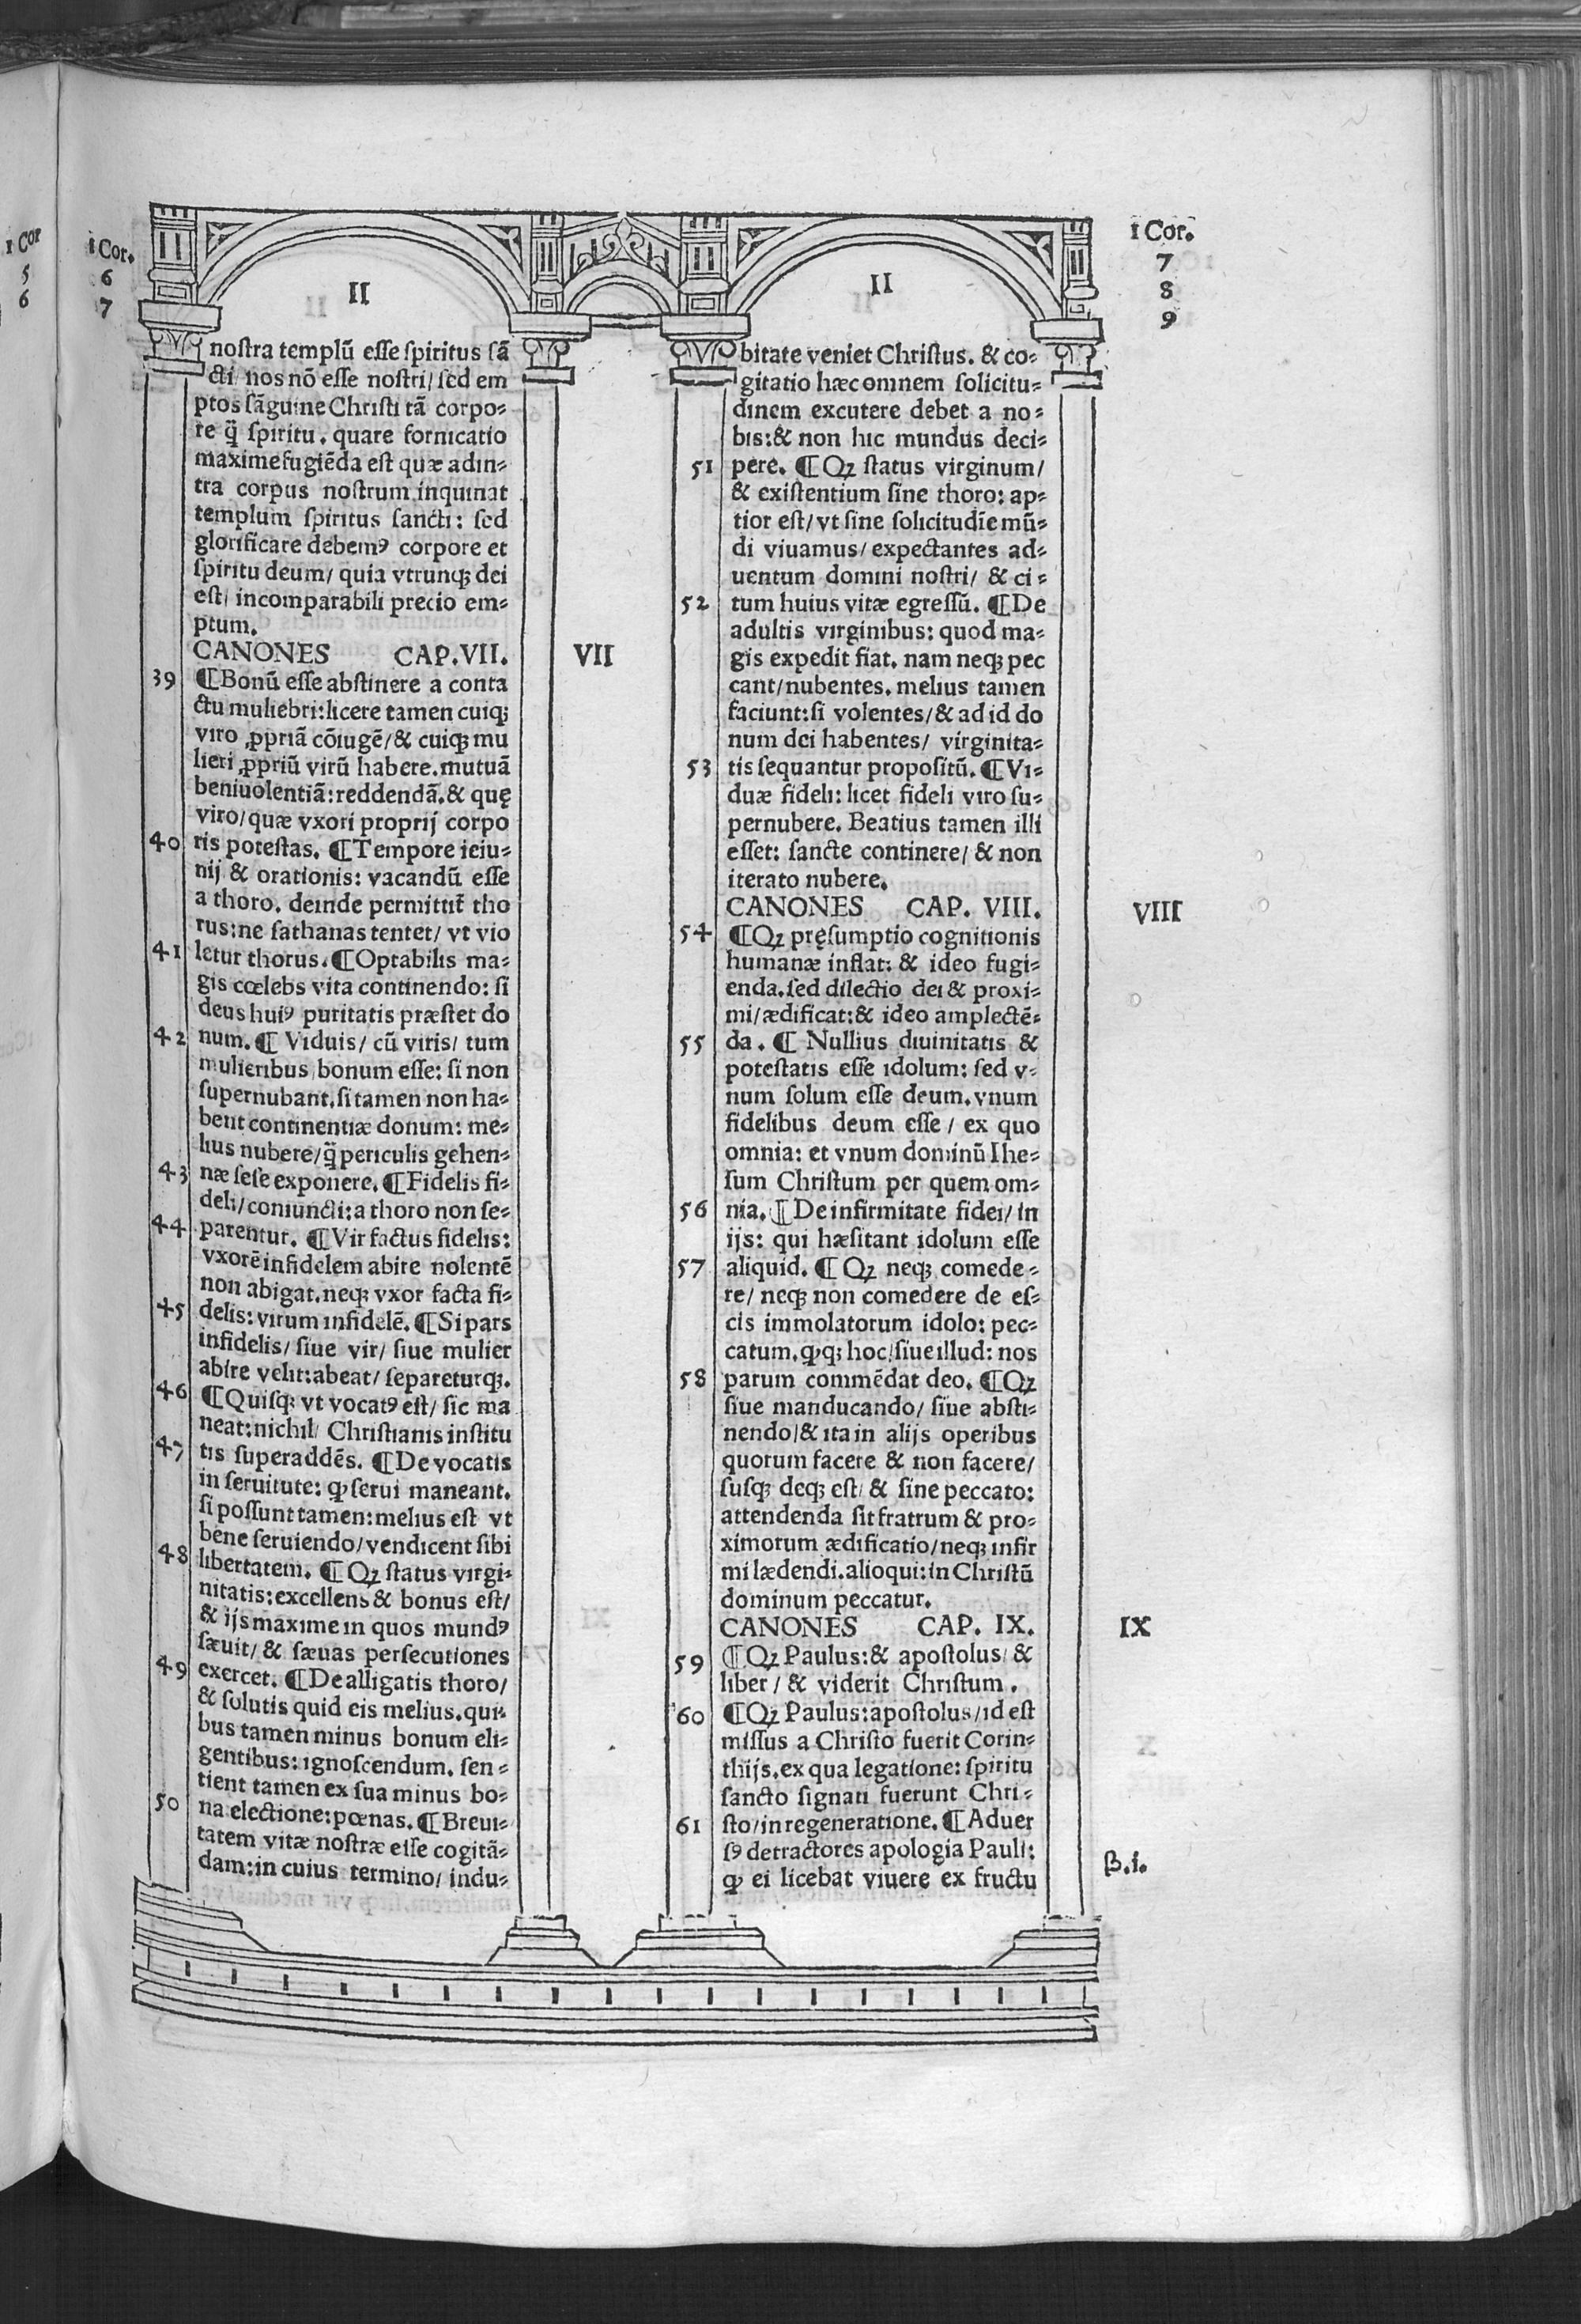 1 Cor
5
6
1 Cor.
6
7
II
nostra templũ esse spiritus sã
cti/ nos nõ esse nostri/ sed em
ptos sãguine Christi tã corpo-
re q̃ spiritu. quare fornicatio
maxime fugiẽda est quæ adin-
tra corpus nostrum inquinat
templum spiritus sancti: sed
glorificare debemꝰ corpore et
spiritu deum/ quia vtrunqꝫ dei
est/ incomparabili precio em-
ptum.
CANONES CAP. VII.
VII
39 ¶Bonũ esse abstinere a conta
ctu muliebri: licere tamen cuiqꝫ
viro ꝓpriã cõiugẽ/ & cuiqꝫ mu
lieri ꝓpriũ virũ habere. mutuã
beniuolentiã: reddendã. & quę
viro/ quæ vxori proprij corpo
40 ris potestas. ¶Tempore ieiu-
nij & orationis: vacandũ esse
a thoro. deinde permittit̃ tho
rus: ne sathanas tentet/ vt vio
41 letur thorus. ¶Optabilis ma-
gis cœlebs vita continendo: si
deus huiꝰ puritatis præstet do
42 num. ¶ Viduis/ cũ viris/ tum
mulieribus bonum esse: si non
supernubant. si tamen non ha-
bent continentiæ donum: me-
lius nubere/ q̃ periculis gehen-
43 næ sese exponere. ¶Fidelis fi-
deli/ coniuncti: a thoro non se-
44 parentur. ¶Vir factus fidelis:
vxorẽ infidelem abire nolentẽ
non abigat. neqꝫ vxor facta fi-
45 delis: virum infidelẽ. ¶Si pars
infidelis/ siue vir/ siue mulier
abire velit: abeat/ separeturqꝫ.
46 ¶Quisqꝫ vt vocatꝰ est/ sic ma
neat: nichil/ Christianis institu
47 tis superaddẽs. ¶De vocatis
in seruitute: ꝙ serui maneant.
si possunt tamen: melius est vt
bene seruiendo/ vendicent sibi
48 libertatem. ¶Qꝫ status virgi-
nitatis: excellens & bonus est/
& ijs maxime in quos mundꝰ
sæuit/ & sæuas persecutiones
49 exercet. ¶De alligatis thoro/
& solutis quid eis melius. qui-
bus tamen minus bonum eli-
gentibus: ignoscendum. sen-
tient tamen ex sua minus bo-
50 na electione: pœnas. ¶Breui-
tatem vitæ nostræ esse cogitã-
dam: in cuius termino/ indu-
1 Cor.
7
8
9
II
bitate veniet Christus. & co-
gitatio hæc omnem solicitu-
dinem excutere debet a no-
bis: & non hic mundus deci-
51 pere. ¶Qꝫ status virginum/
& existentium sine thoro: ap-
tior est/ vt sine solicitudĩe mũ-
di viuamus/ expectantes ad-
uentum domini nostri/ & ci-
52 tum huius vitæ egressũ. ¶De
adultis virginibus: quod ma-
gis expedit fiat. nam neqꝫ pec
cant/ nubentes. melius tamen
faciunt: si volentes/ & ad id do
num dei habentes/ virginita-
53 tis sequantur propositũ. ¶Vi-
duæ fideli: licet fideli viro su-
pernubere. Beatius tamen illi
esset: sancte continere/ & non
iterato nubere.
CANONES CAP. VIII.
VIII
54 ¶Qꝫ pręsumptio cognitionis
humanæ inflat: & ideo fugi-
enda. sed dilectio dei & proxi-
mi/ ædificat: & ideo amplectẽ-
55 da. ¶ Nullius diuinitatis &
potestatis esse idolum: sed v-
num solum esse deum. vnum
fidelibus deum esse/ ex quo
omnia: et vnum dominũ Ihe-
sum Christum per quem om-
56 nia. ¶De infirmitate fidei/ in
ijs: qui hæsitant idolum esse
57 aliquid. ¶ Qꝫ neqꝫ comede-
re/ neqꝫ non comedere de es-
cis immolatorum idolo: pec-
catum. ꝙqꝫ hoc/ siue illud: nos
58 parum commẽdat deo. ¶Qꝫ
siue manducando/ siue absti-
nendo/ & ita in alijs operibus
quorum facere & non facere/
susqꝫ deqꝫ est/ & sine peccato:
attendenda sit fratrum & pro-
ximorum ædificatio/ neqꝫ infir
mi lædendi. alioqui: in Christũ
dominum peccatur.
CANONES CAP. IX.
IX
59 ¶Qꝫ Paulus: & apostolus/ &
liber/ & viderit Christum.
60 ¶Qꝫ Paulus: apostolus/ id est
missus a Christo fuerit Corin-
thijs. ex qua legatione: spiritu
sancto signati fuerunt Chri-
61 sto/ in regeneratione. ¶Aduer
sꝰ detractores apologia Pauli:
ꝙ ei licebat viuere ex fructu
β.i.